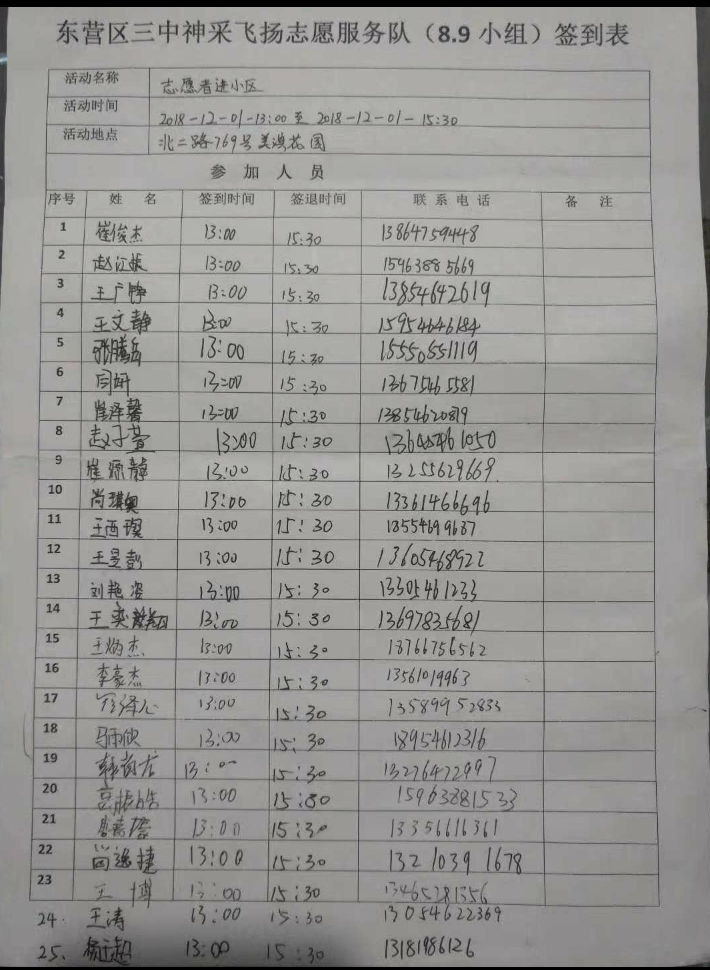 东营区三中神采飞扬志愿服务队（8.9 小组）签到表
活动名称 志愿者进小区
活动时间 2018-12-01-13:00 至 2018-12-01-15:30
活动地点 北二路769号美澳花园
参 加 人 员
序号 姓 名 签到时间 签退时间 联 系 电 话 备 注
1 崔俊杰 13:00 15:30 13864759448
2 13:00 15:30 15963885669
3 王广静 13:00 15:30 13854642619
4 王文静 13:00 15:30 15954646184
5 张腾岳 13:00 15:30 15550551119
6 闫妍 13:00 15:30 13675465581
7 崔泽馨 13:00 15:30 13854620819
8 赵子萱 13:00 15:30
9 崔源静 13:00 15:30 13255629669
10 13:00 15:30 13361466696
11 王西璨 13:00 15:30 13554699637
12 王昱彭 13:00 15:30 13605468922
13 刘艳姿 13:00 15:30 13305461233
14 王奕 13:00 15:30 13697835681
15 王炳杰 13:00 15:30 18766756562
16 李豪杰 13:00 15:30 13561019963
17 13:00 15:30 13589952833
18 13:00 15:30 18954612316
19 13:00 15:30 13276472997
20 13:00 15:30 15963881533
21 13:00 15:30 13356616361
22 尚逸捷 13:00 15:30 13210391678
23 王博 13:00 15:30 13465281356
24. 王涛 13:00 15:30 13054622369
25. 13:00 15:30 13181986126